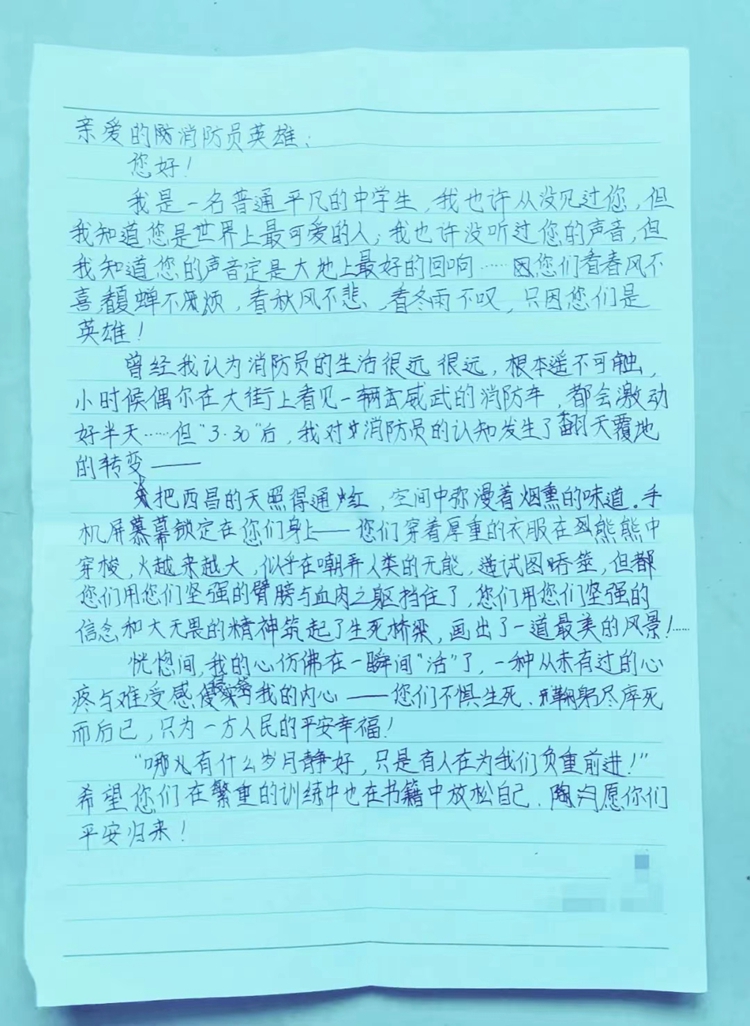 亲爱的消防员英雄：
您好！
我是一名普通平凡的中学生，我也许从没见过您，但
我知道您是世界上最可爱的人；我也许没听过您的声音，但
我知道您的声音定是大地上最好的回响……因您们看春风不
喜，看夏蝉不烦，看秋风不悲，看冬雨不叹，只因您们是
英雄！
曾经我认为消防员的生活很远很远，根本遥不可触，
小时候偶尔在大街上看见一辆威武的消防车，都会激动
好半天……但“3·30”后，我对消防员的认知发生了翻天覆地
的转变——
火把西昌的天照得通红，空间中弥漫着烟熏的味道。手
机屏幕锁定在你们身上——您们穿着厚重的衣服在熊熊中
穿梭，火越来越大，似乎在嘲弄人类的无能，试图，但都
您们用您们坚强的臂膀与血肉之躯挡住了，您们用您们坚强的
信念和大无畏的精神筑起了生死桥梁，画出了一道最美的风景！……
恍惚间，我的心仿佛在一瞬间“活”了，一种从未有过的心
疼与难受感我的内心——您们不惧生死、鞠躬尽瘁死
而后已，只为一方人民的平安幸福！
“哪儿有什么岁月静好，只是有人在为我们负重前进！”
希望您们在繁重的训练中也在书籍中放松自己，愿你们
平安归来！